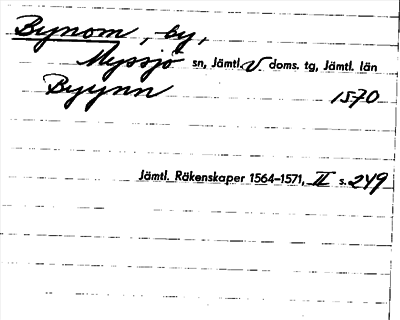 Bynom, by,
Myssjö sn, Jämtl. V doms. tg, Jämtl. län
Byynn 1570
Jämtl. Räkenskaper 1564-1571, II s. 249